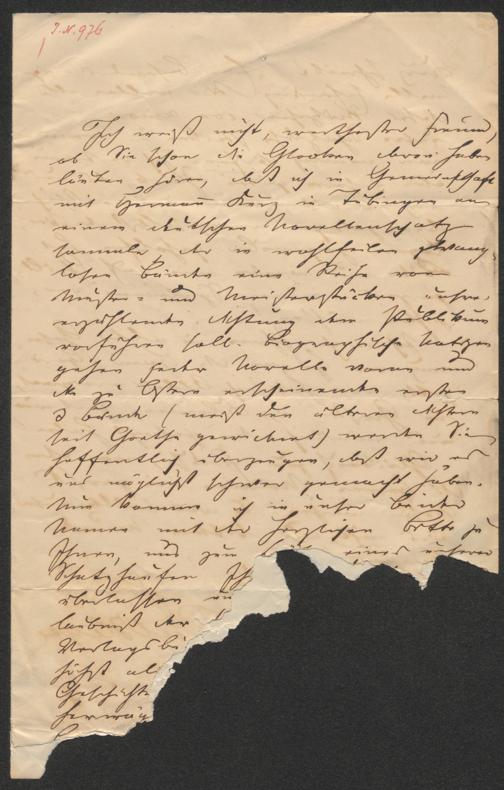 I. N. 976
Ich weiß nicht, werthester Freund,
ob Sie schon die Glocken davon haben
läuten hören, daß ich in Gemeinschaft
mit Hermann Kurz in Tübingen an
einem deutschen Novellenschatz
sammle, der in wohlfeilen zwang-
losen Bänden eine Reihe von
Muster- und Meisterstücken unsrer
erzählenden Dichtung dem Publikum
vorführen soll. Biographische Notizen
gehen jeder Novelle voran und
die zu Ostern erscheinenden ersten
3 Bände (meist den älteren Dichtern
seit Goethe gewidmet) werden Sie
hoffentlich überzeugen, daß wir es
uns möglichst schwer gemacht haben.
Nun komme ich in unser beider
Namen mit der herzlichen Bitte zu
Ihnen, uns zum eines unserer
Schatzhäuser Ih
überlassen
laubniß der
Verlagsbu
höchst al
Geschichte